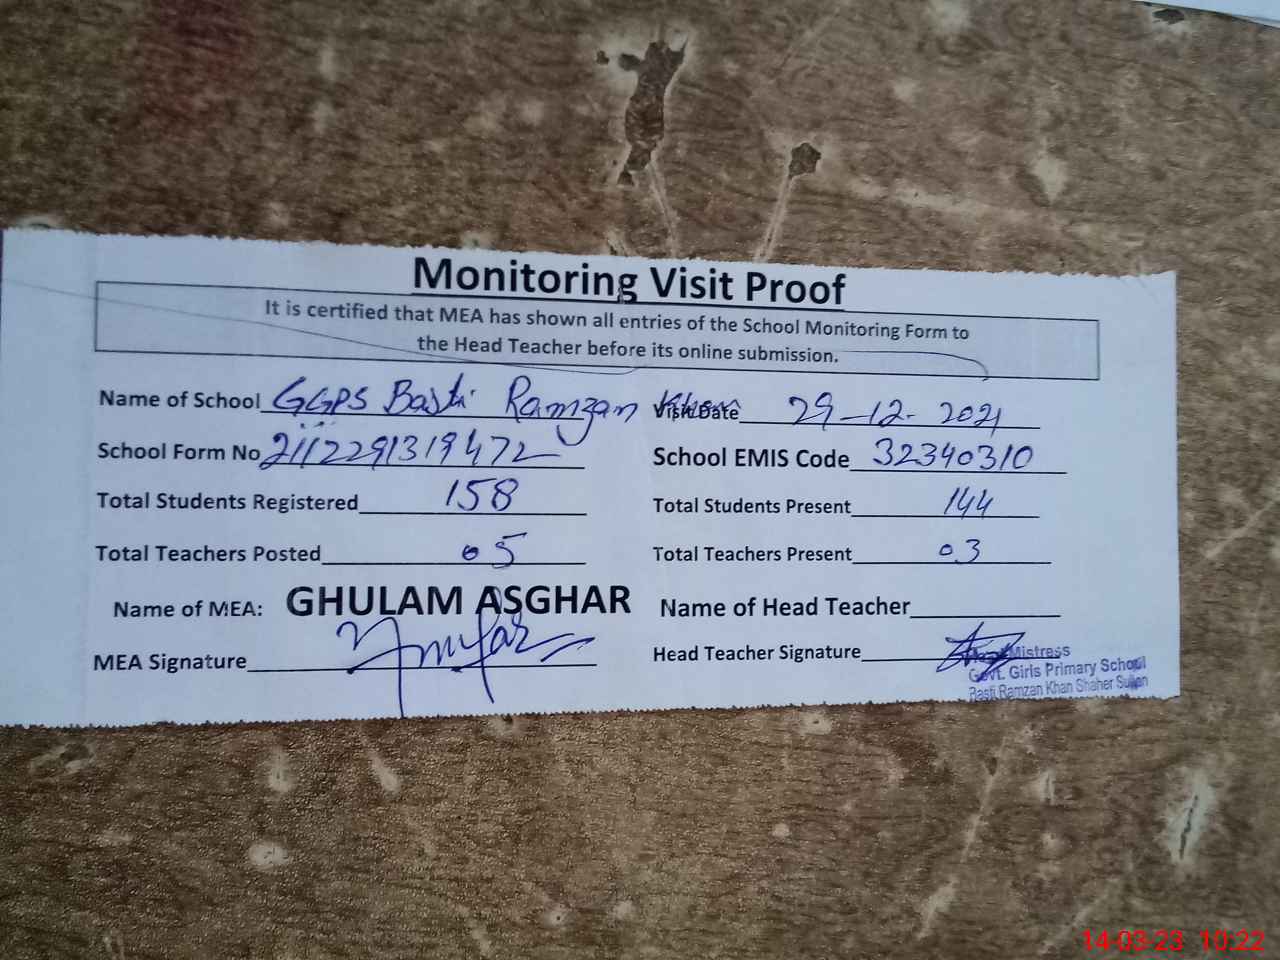 Monitoring Visit Proof
It is certified that MEA has shown all entries of the School Monitoring Form to
the Head Teacher before its online submission.
Name of School GGPS Basti Ramzan Khan Visit Date 29-12-2021
School Form No 2112291319472 School EMIS Code 32340310
Total Students Registered 158 Total Students Present 144
Total Teachers Posted 05 Total Teachers Present 03
Name of MEA: GHULAM ASGHAR Name of Head Teacher
MEA Signature Head Teacher Signature
Mistress
Govt. Girls Primary School
Basti Ramzan Khan Shaher Sultan
14-03-23 10:22